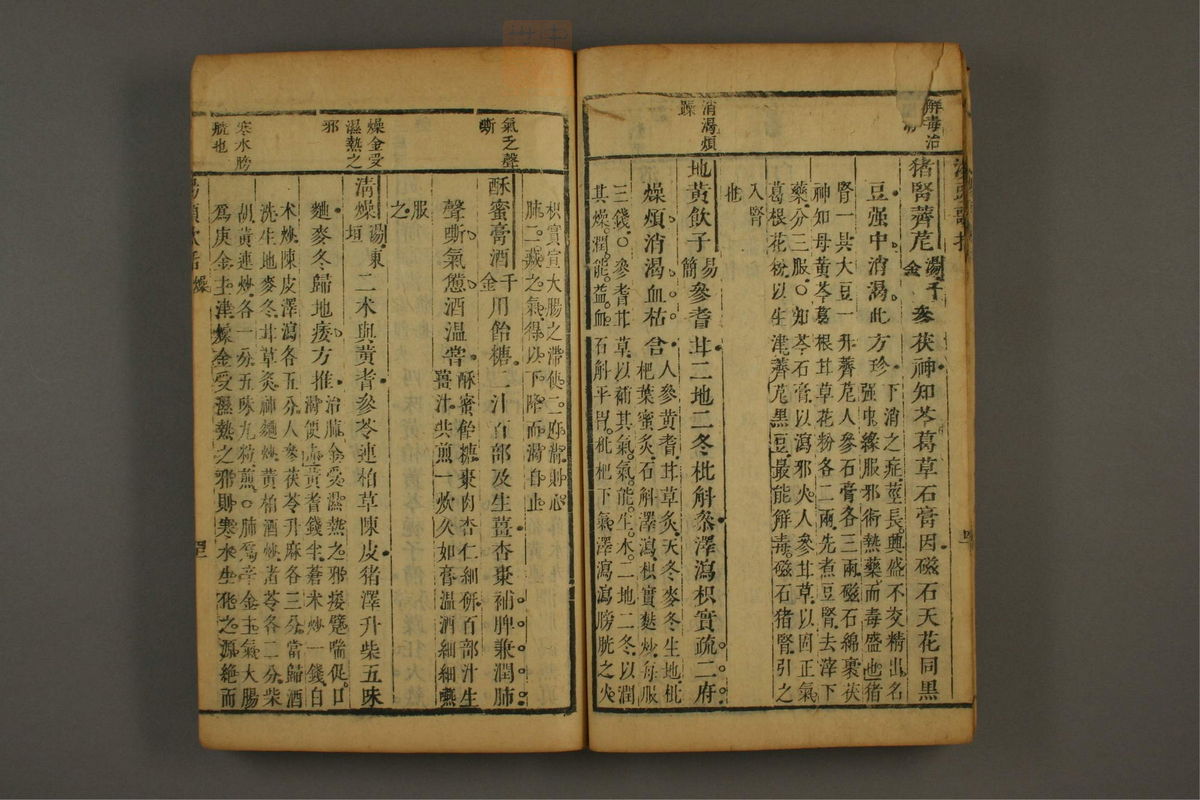 解毒治
猪腎薺苨湯千金參茯神知芩葛草石膏因磁石天花同黑
豆强中消渴此方珍下消之症莖長興盛不交精出名
强中緣服邪術熱藥而毒盛也猪
腎一具大豆一升薺苨人參石膏各三兩磁石綿裹茯
神知母黃芩葛根甘草花粉各二兩先煮豆腎去滓下
藥分三服○知芩石膏以瀉邪火人參甘草以固正氣
葛根花粉以生津薺苨黑豆最能解毒磁石猪腎引之
入腎
也
消渴煩
躁
地黃飲子易簡參耆甘二地二冬枇斛叅澤瀉枳實疏二府
燥煩消渴血枯含人參黃耆甘草炙天冬麥冬生地枇
杷葉蜜炙石斛澤瀉枳實麩炒每服
三錢○參耆甘草以補其氣氣能生水二地二冬以潤
其燥潤能益血石斛平胃枇杷下氣澤瀉瀉膀胱之火
枳實宣大腸之滯使二府清則心
肺二臟之氣得以下降而渴自止
氣乏聲
嘶
酥蜜膏酒千金用飴糖二汁百部及生薑杏棗補脾兼潤肺
聲嘶氣憊酒温嘗酥蜜飴糖棗肉杏仁細研百部汁生
薑汁共煎一炊久如膏温酒細細嚥
服
之
燥金受
濕熱之
邪
清燥湯東垣二朮與黃耆參苓連柏草陳皮猪澤升柴五味
麯麥冬歸地痿方推治肺金受濕熱之邪痿躄喘促口
渴便赤黃耆錢半蒼朮炒一錢白
朮炒陳皮澤瀉各五分人參茯苓升麻各三分當歸酒
洗生地麥冬甘草炙神麯炒黃柏酒炒猪苓各二分柴
胡黃連炒各一分五味九粒煎○肺爲辛金主氣大腸
爲庚金主津燥金受濕熱之邪則寒水生化之源絕而
寒水膀
胱也
湯頭歌括 燥